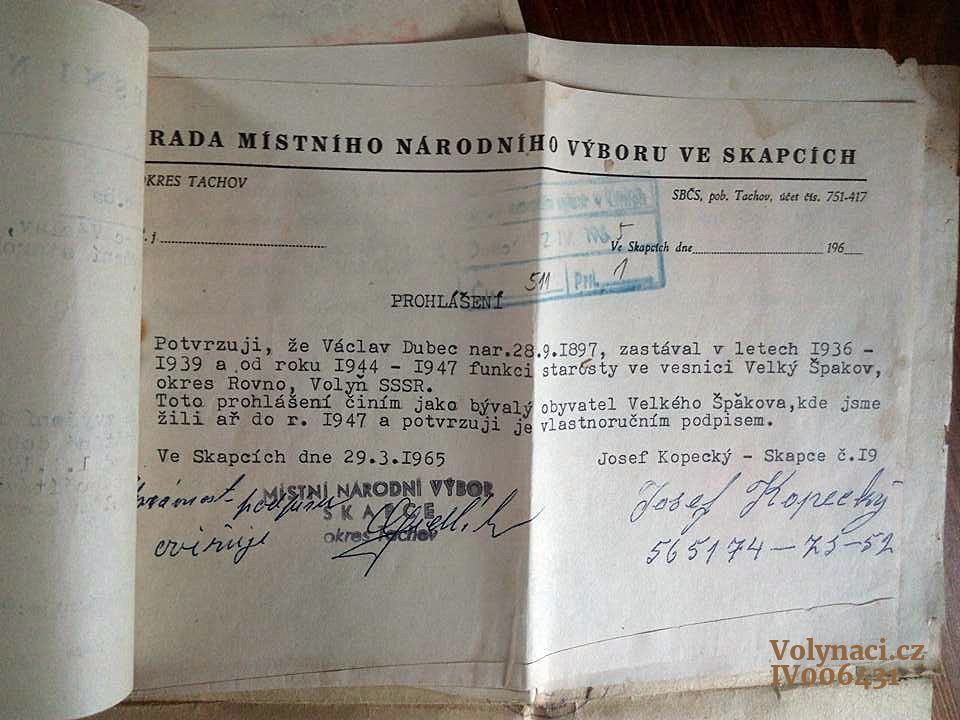 RADA MÍSTNÍHO NÁRODNÍHO VÝBORU VE SKAPCÍCH
OKRES TACHOV
SBČS, pob. Tachov, účet čís. 751-417
j.
2 IV. 1965
Ve Skapcích dne 196
511 Příl. 1
PROHLÁŠENÍ
Potvrzuji, že Václav Dubec nar.28.9.I897, zastával v letech I936 -
I939 a od roku I944 - I947 funkci starosty ve vesnici Velký Špakov,
okres Rovno, Volyň SSSR.
Toto prohlášení činím jako bývalý obyvatel Velkého Špákova,kde jsme
žili ař do r. I947 a potvrzuji je vlastnoručním podpisem.
Ve Skapcích dne 29.3.I965
Josef Kopecký - Skapce č.I9
MÍSTNÍ NÁRODNÍ VÝBOR
SKAPCE
okres Tachov
správnost podpisu
ověřuje
Josef Kopecký
565174-75-52
Volynaci.cz
IV006431